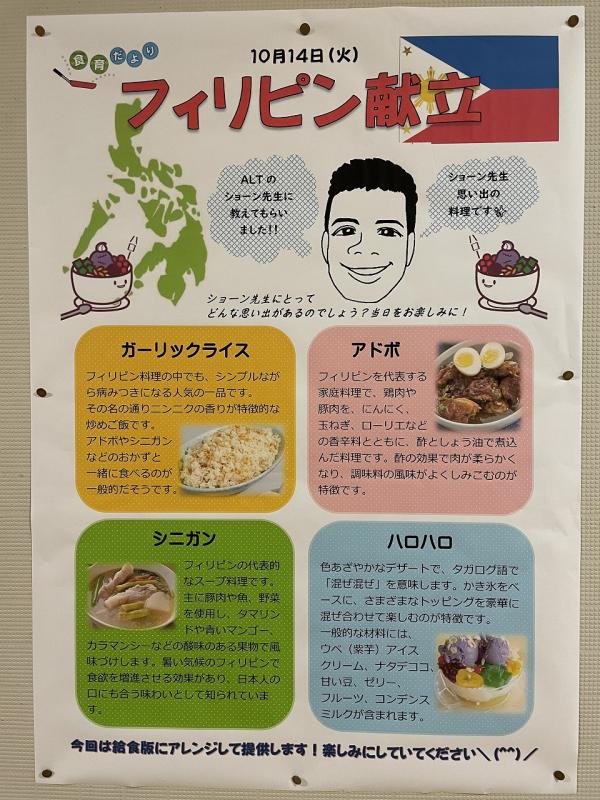 食育だより
10月14日(火)
フィリピン献立
ALTの
ショーン先生に
教えてもらい
ました!!
ショーン先生
思い出の
料理です
ハロー
ハロー
ショーン先生にとって
どんな思い出があるのでしょう?当日をお楽しみに!
ガーリックライス
フィリピン料理の中でも、シンプルなが
ら病みつきになる人気の一品です。
その名の通りニンニクの香りが特徴的な
炒めご飯です。
アドボやシニガン
などのおかずと
一緒に食べるのが
一般的だそうです。
アドボ
フィリピンを代表する
家庭料理で、鶏肉や
豚肉を、にんにく、
玉ねぎ、ローリエなど
の香辛料とともに、酢としょう油で煮込
んだ料理です。酢の効果で肉が柔らかく
なり、調味料の風味がよくしみこむのが
特徴です。
シニガン
フィリピンの代表的
なスープ料理です。
主に豚肉や魚、野菜
を使用し、タマリン
ドや青いマンゴー、
カラマンシーなどの酸味のある果物で風
味づけします。暑い気候のフィリピンで
食欲を増進させる効果があり、日本人の
口にも合う味わいとして知られていま
す。
ハロハロ
色あざやかなデザートで、タガログ語で
「混ぜ混ぜ」を意味します。かき氷をベ
ースに、さまざまなトッピングを豪華に
混ぜ合わせて楽しむのが特徴です。
一般的な材料には、
ウベ(紫芋)アイス
クリーム、ナタデココ、
甘い豆、ゼリー、
フルーツ、コンデンス
ミルクが含まれます。
今回は給食版にアレンジして提供します!楽しみにしていてください＼(^^)／